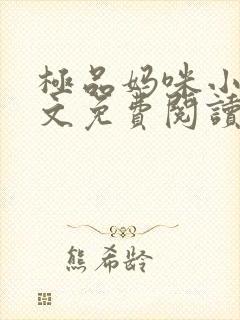 極品妈咪小
文免費閱讀
熊希龄